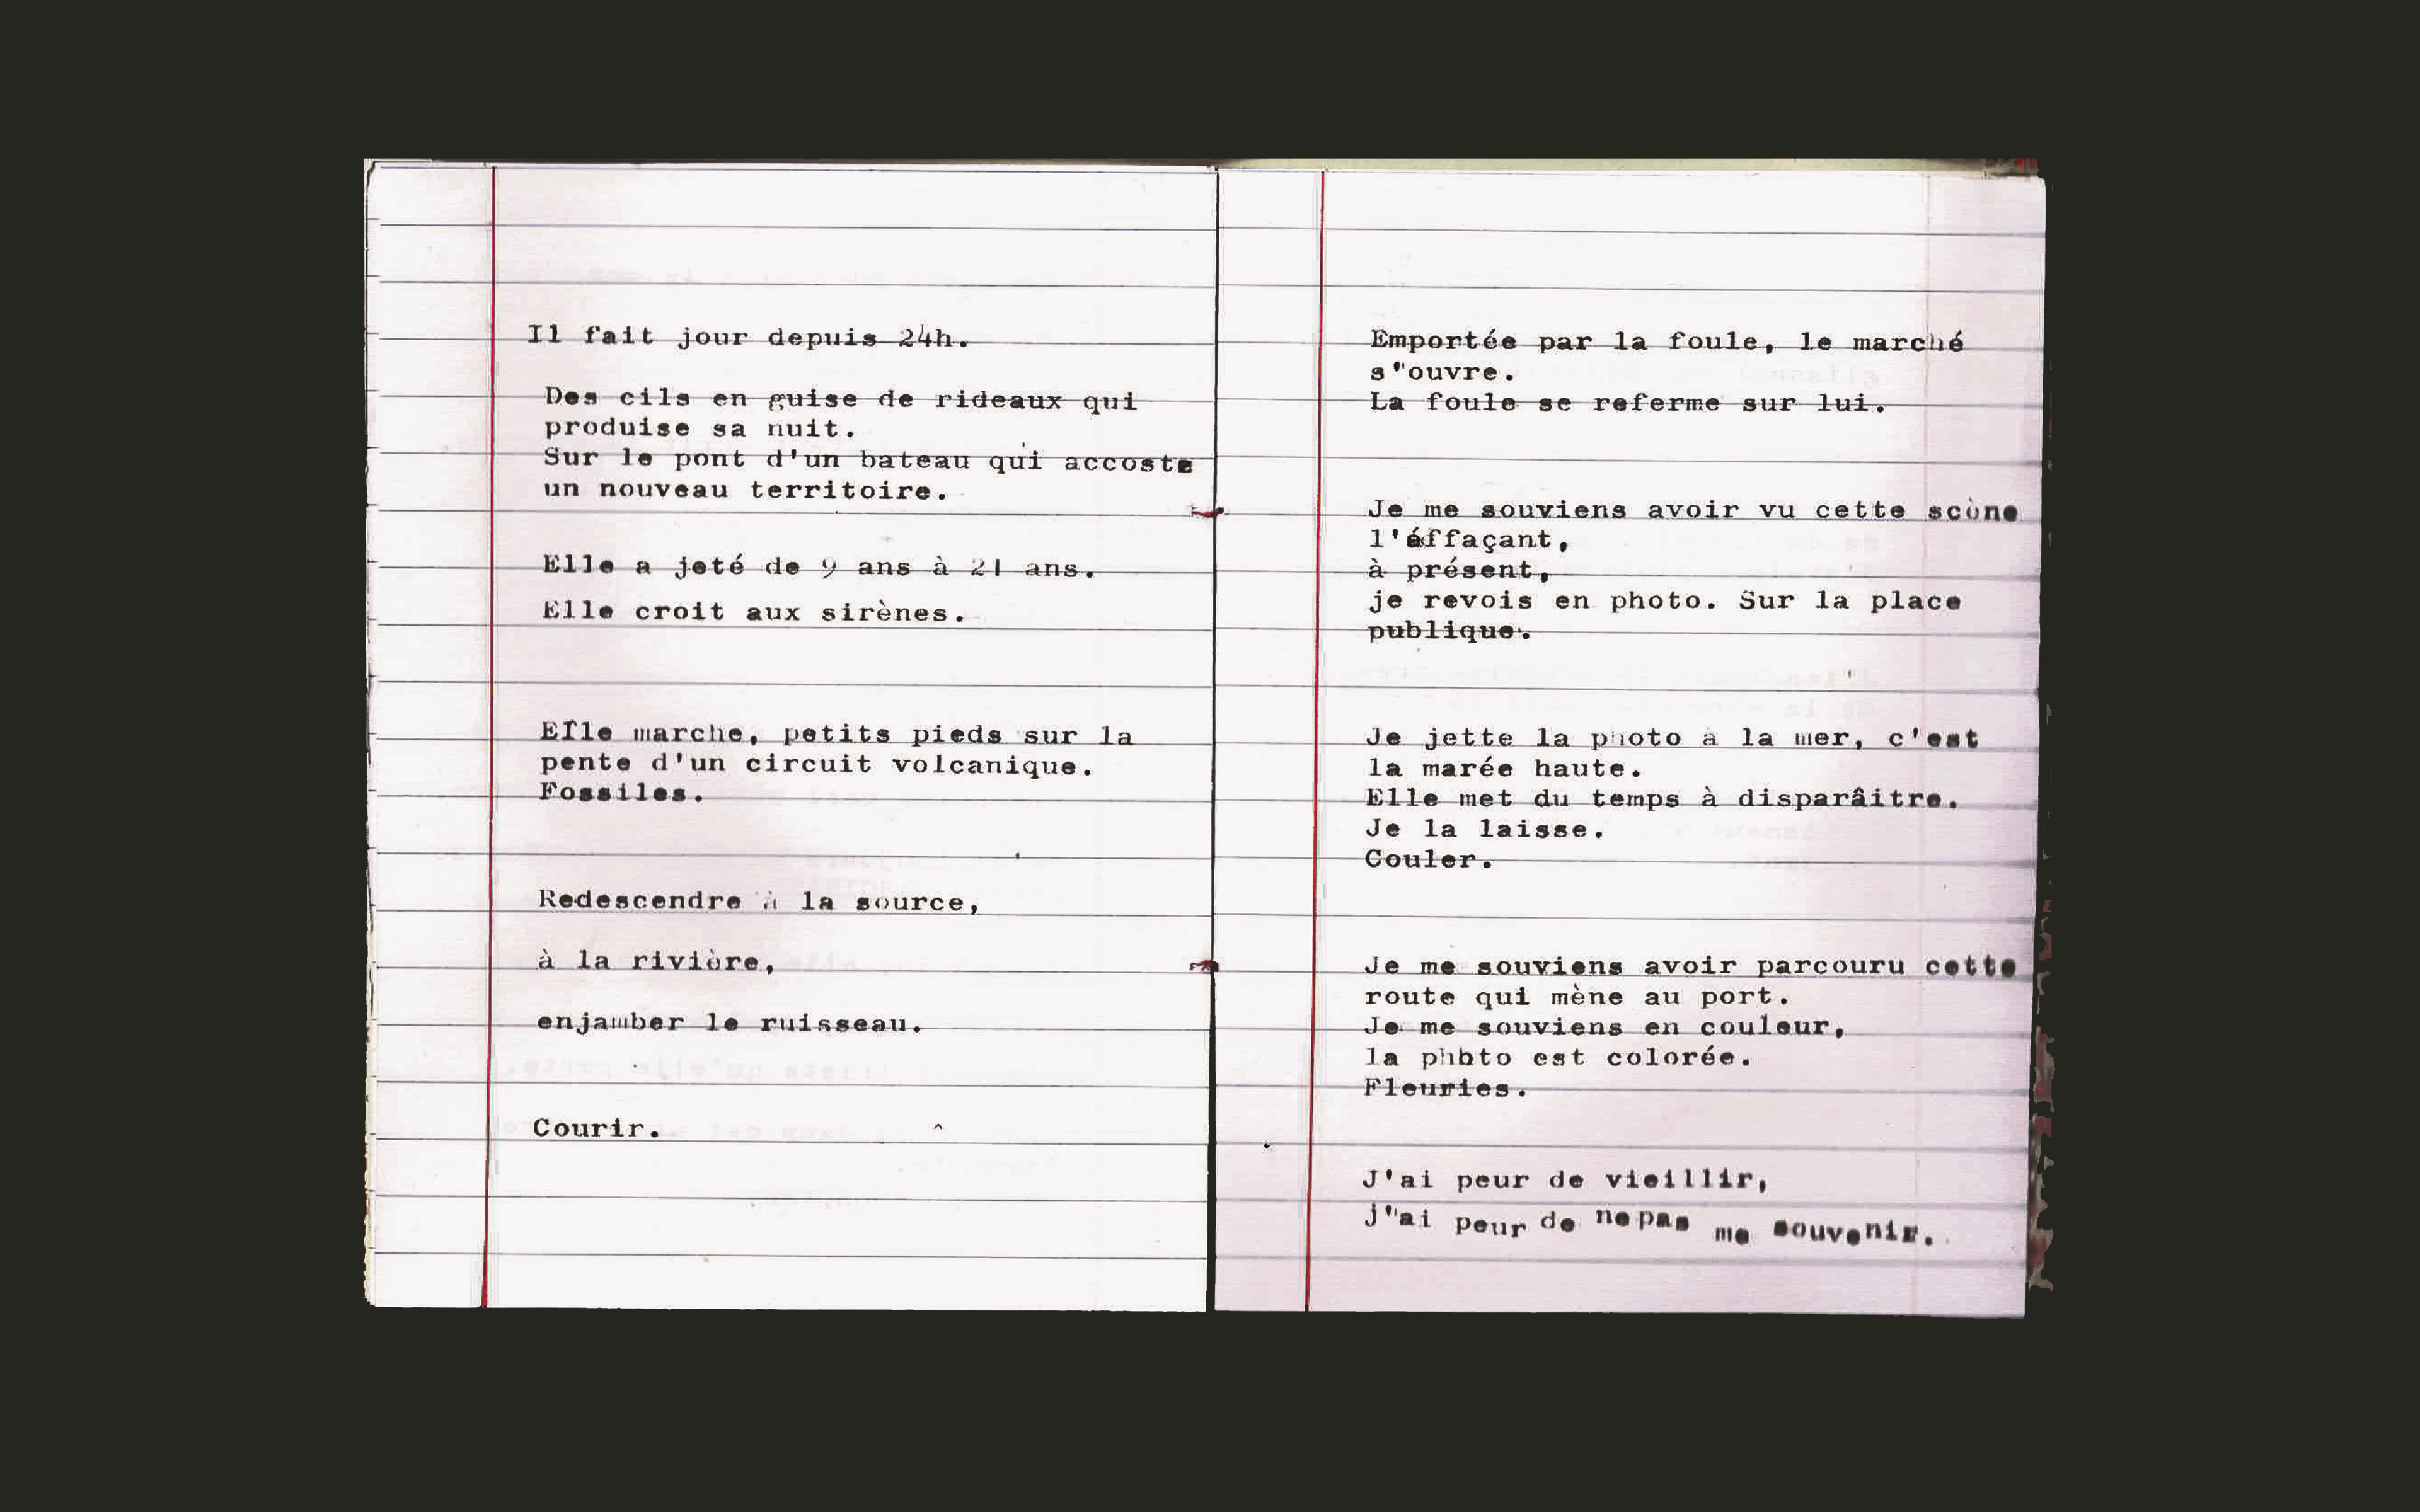 Il fait jour depuis 24h.
Des cils en guise de rideaux qui
produise sa nuit.
Sur le pont d'un bateau qui accoste
un nouveau territoire.
Elle a jeté de 9 ans à 21 ans.
Elle croit aux sirènes.
Elle marche, petits pieds sur la
pente d'un circuit volcanique.
Fossiles.
Redescendre à la source,
à la rivière,
enjamber le ruisseau.
Courir.
Emportée par la foule, le marché
s"ouvre.
La foule se referme sur lui.
Je me souviens avoir vu cette scène
l'éffaçant,
à présent,
je revois en photo. Sur la place
publique.
Je jette la photo à la mer, c'est
la marée haute.
Elle met du temps à disparâitre.
Je la laisse.
Couler.
Je me souviens avoir parcouru cette
route qui mène au port.
Je me souviens en couleur,
la phhto est colorée.
Fleuries.
J'ai peur de vieillir,
j"ai peur de ne pas me souvenir.